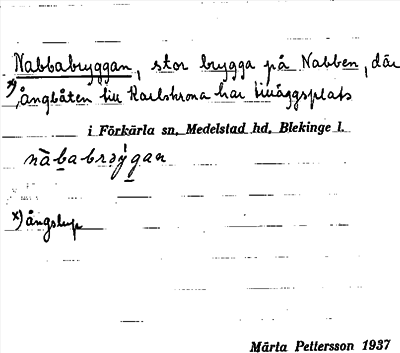 Nabbabryggan, stor brygga på Nabben, där
x) ångbåten till Karlskrona har tilläggsplats
i Förkärla sn, Medelstad hd, Blekinge l.
x) ångslup
Märta Pettersson 1937